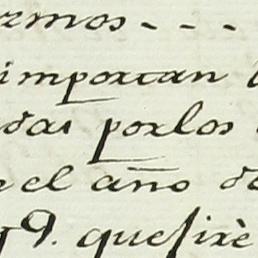 rmos - - -
importan
das por los
el año de
9. que sirè